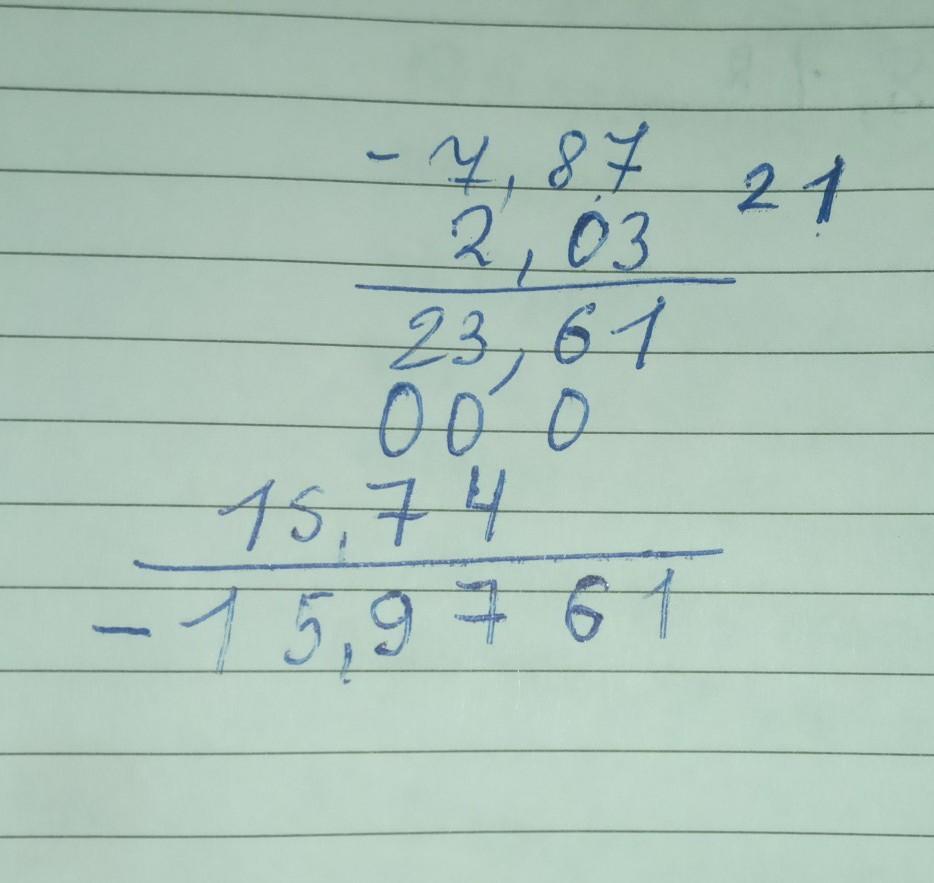 -7,87 21
2,03
23,61
00 0
15,74
-15,9761